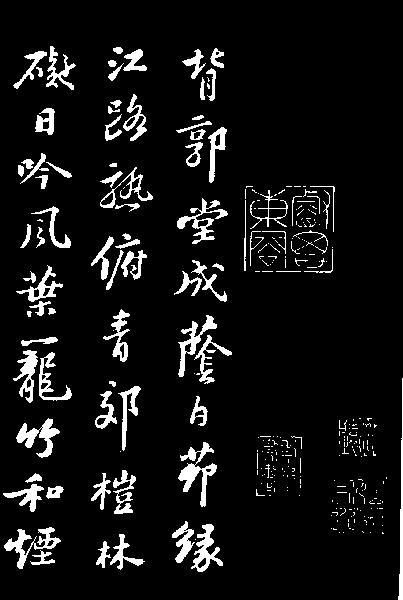 背郭堂成蔭白茆緣
江路熟俯青郊榿林
礙日吟風葉籠竹和煙